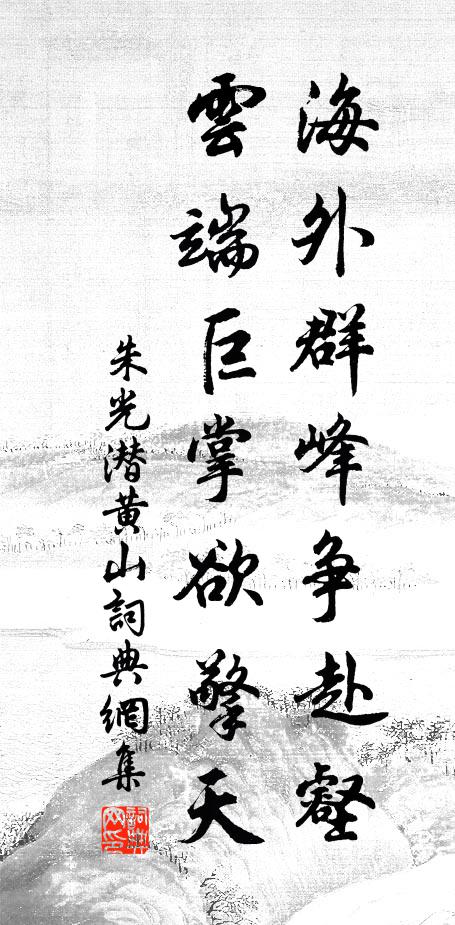 海外群峰争赴壑
雲端巨掌欲擎天
朱光潜黄山詞典網集